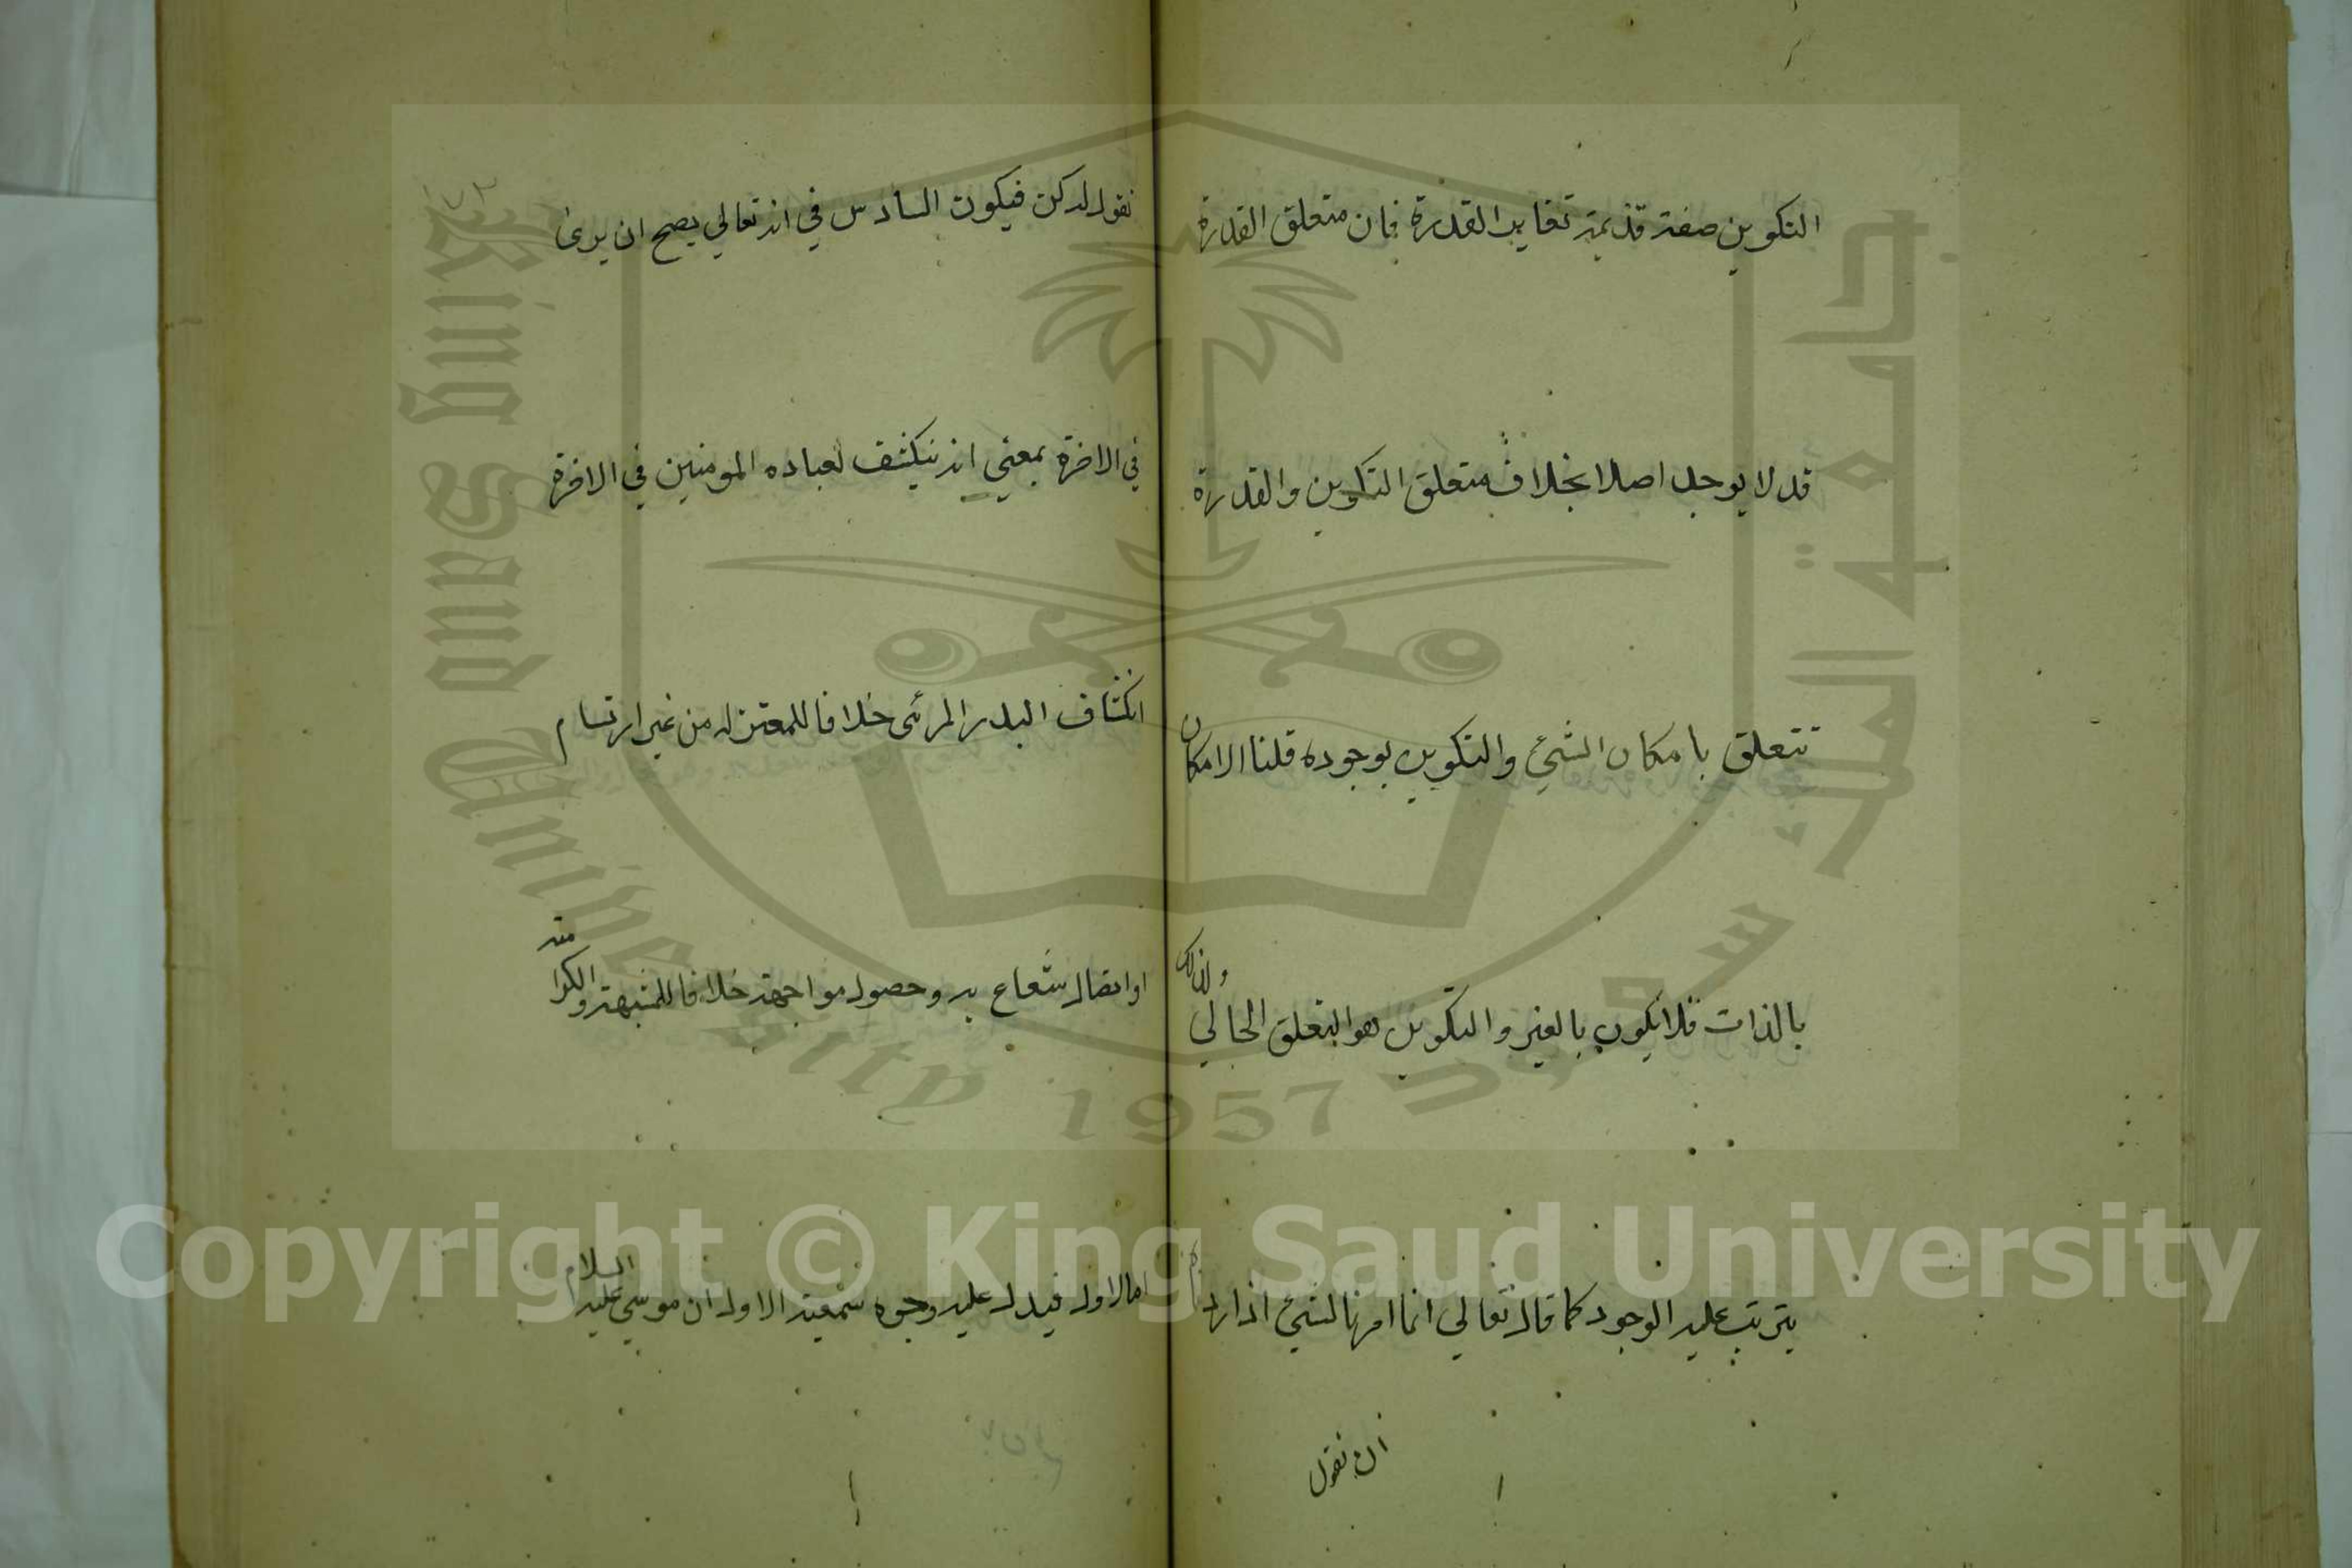 التكوين صفة قديمة تغاير القدرة فان متعلق القدرة
قد لا يوجد اصلا بخلاف متعلق التكوين والقدرة
تتعلق بامكان الشئ والتكوين بوجوده قلنا الامكان
بالذات فلا يكون بالغير والتكوين هو التعلق الحالي ولذلك
يترتب عليه الوجود كما قال تعالى انما امرنا لشئ اذا اردناه
ان نقول
نقول له كن فيكون السادس في انه تعالي يصح ان يرى
في الاخرة بمعني انه ينكشف لعباده المومنين في الاخرة
انكشاف البدر المرئى خلافا للمعتزله من غير ارتسام
او اتصال شعاع به وحصول مواجهة خلافا للمشبهة والكرامية
اما الاول فيدل عليه وجوه سمعية الاول ان موسي عليه السلام
King Saud University 1957
جامعة الملك سعود
Copyright © King Saud University